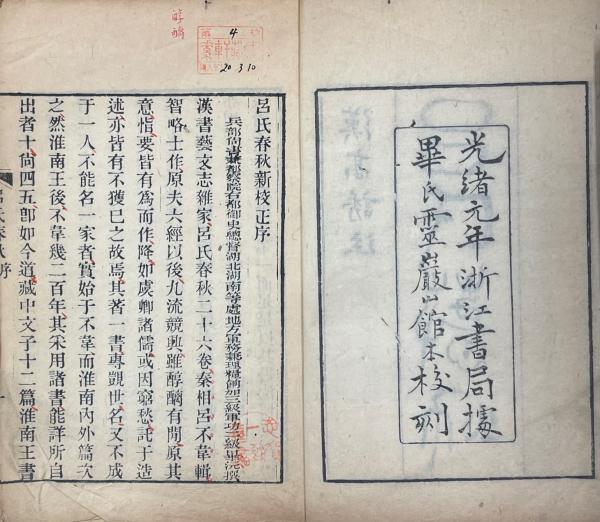 光緒元年浙江書局據
畢氏靈巖山館本校刻
醇醨
4
20 3 10
呂氏春秋新校正序
兵部尚書兼都察院右都御史總督湖北湖南等處地方軍務兼理糧餉加三級軍功二級畢沅撰
漢書藝文志雜家呂氏春秋二十六卷秦相呂不韋輯
智略士作原夫六經以後九流競興雖醇醨有間原其
意恉要皆有為而作降如虞卿諸儒或因窮愁託于造
述亦皆有不獲已之故焉其著一書專覬世名又不成
于一人不能名一家者實始于不韋而淮南內外篇次
之然淮南王後不韋幾二百年其采用諸書能詳所自
出者十尚四五即如今道藏中文子十二篇淮南王書
呂氏春秋序
一